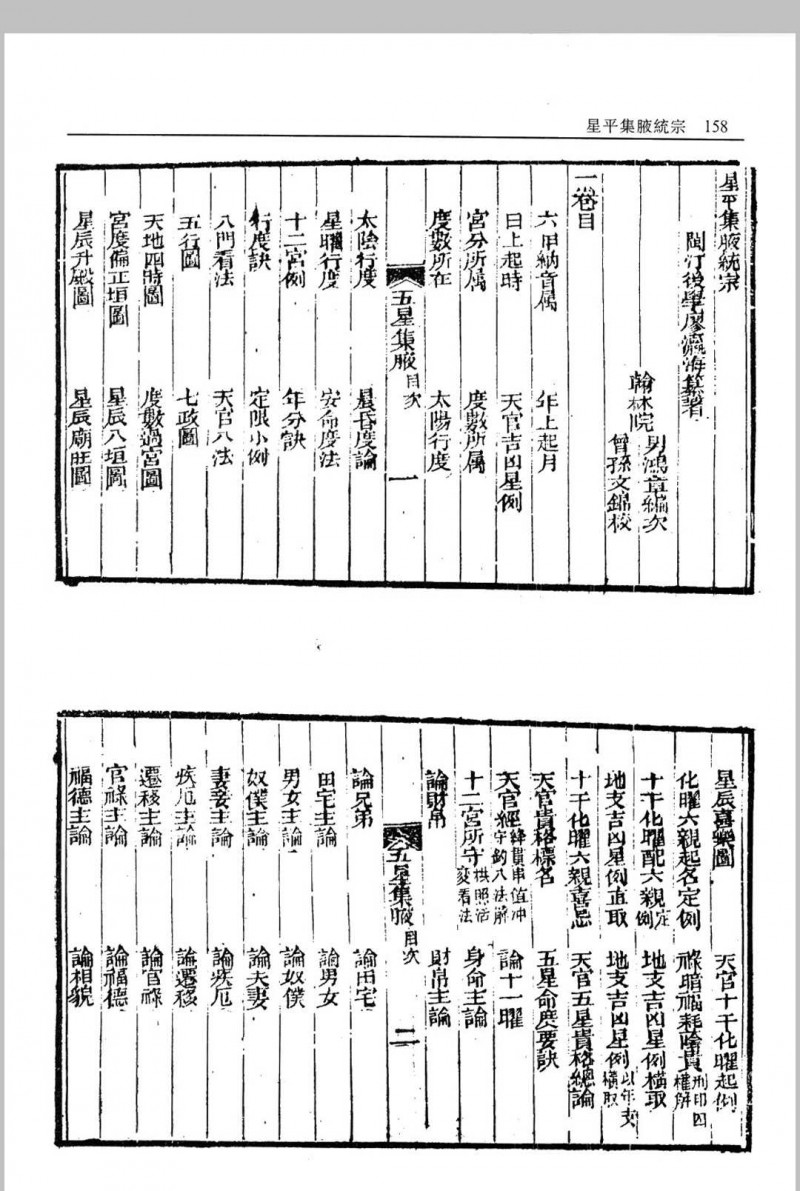 星平集腋統宗 158
星平集腋統宗
閩汀後學廖瀛海纂著
翰林院 男鴻章編次
曾孫文錦校
一卷目
六甲納音属 年上起月
日上起時 天官吉凶星例
宮分所属 度數所属
度數所在 太陽行度
五星集腋 目次 一
太陰行度 星昏度論
星曜行度 安命度法
十二宮例 年分訣
行度訣 定限小例
八門看法 天官八法
五行圖 七政圖
天地四時圖 度數過宮圖
宮度偏正垣圖 星辰八垣圖
星辰升殿圖 星辰廟旺圖
星辰喜樂圖 天官十干化曜起例
化曜六親起名定例 祿暗福耗蔭貴刑印囚權解
十干化曜配六親定例 地支吉凶星例橫取
地支吉凶星例直取 地支吉凶星例以年支橫取
十干化曜六親喜忌 天官五星貴格總論
天官貴格標名 五星命度要訣
天官經緯貫串值冲守鈞八法解 論十一曜
十二宮所守拱照活变看法 身命主論
論財帛 財帛主論
五星集腋 目次 二
論兄弟 論田宅
田宅主論 論男女
男女主論 論奴僕
奴僕主論 論夫妻
妻妾主論 論疾厄
疾厄主論 論遷移
遷移主論 論官祿
官祿主論 論福德
福德主論 論相貌